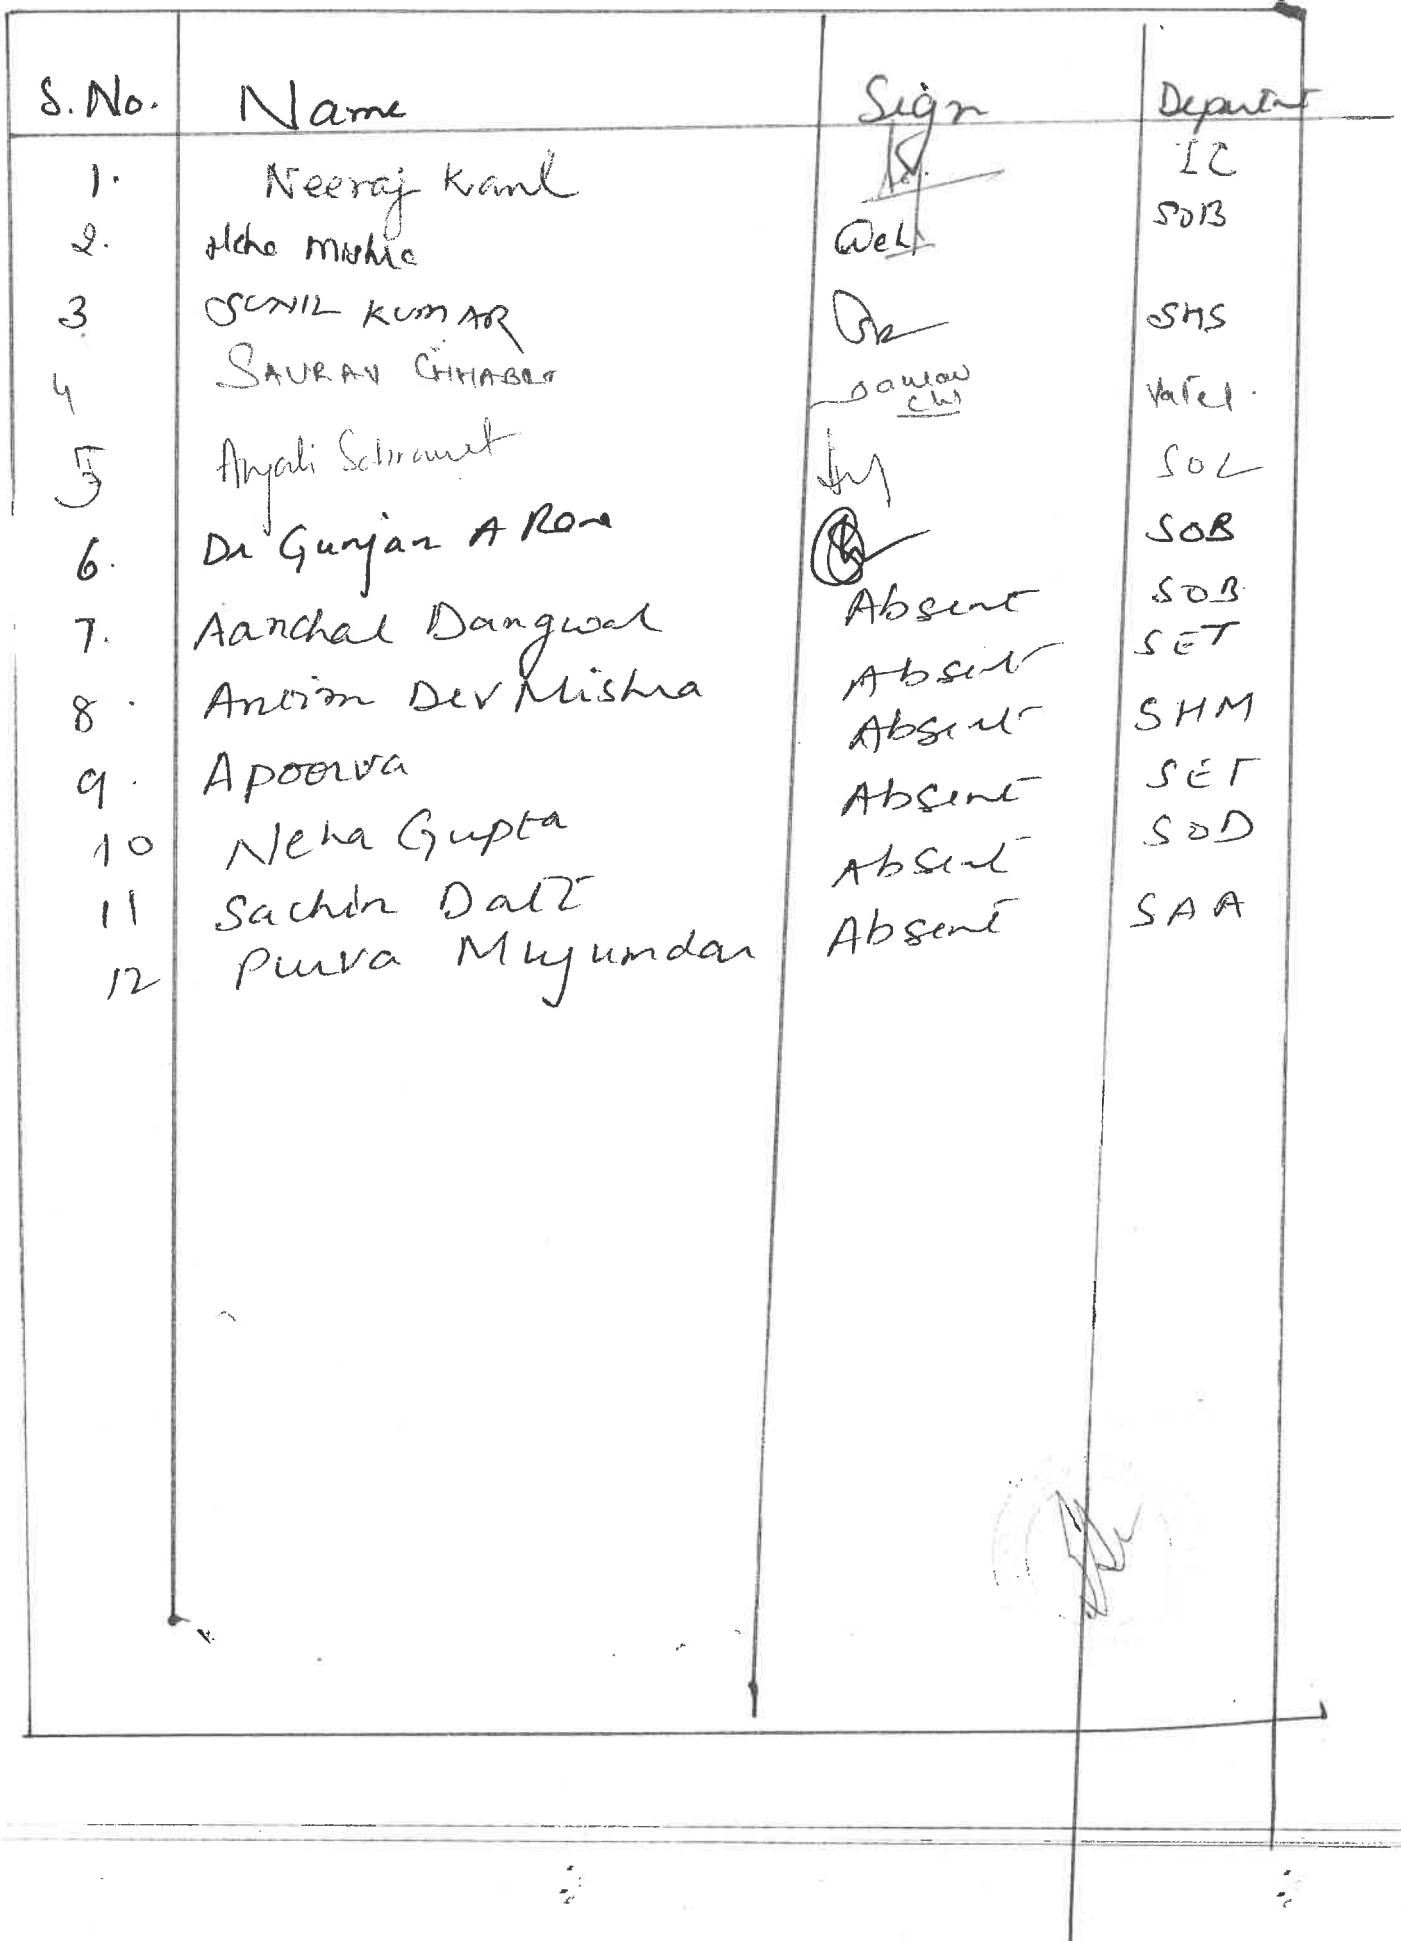 S. No. Name Sign Department
1. Neeraj Kaul IC
2. Neha Mishra SOB
3 SUNIL KUMAR SHS
4 SAURAV CHHABRA Saurav Vatel.
5 Anjali SOL
6. Dr Gunjan A Rana SOB
7. Aanchal Dangwal Absent SOB
8. Antim Dev Mishra Absent SET
9. Apoorva Absent SHM
10 Neha Gupta Absent SET
11 Sachin Datt Absent SOD
12 Purva Mujumdar Absent SAA